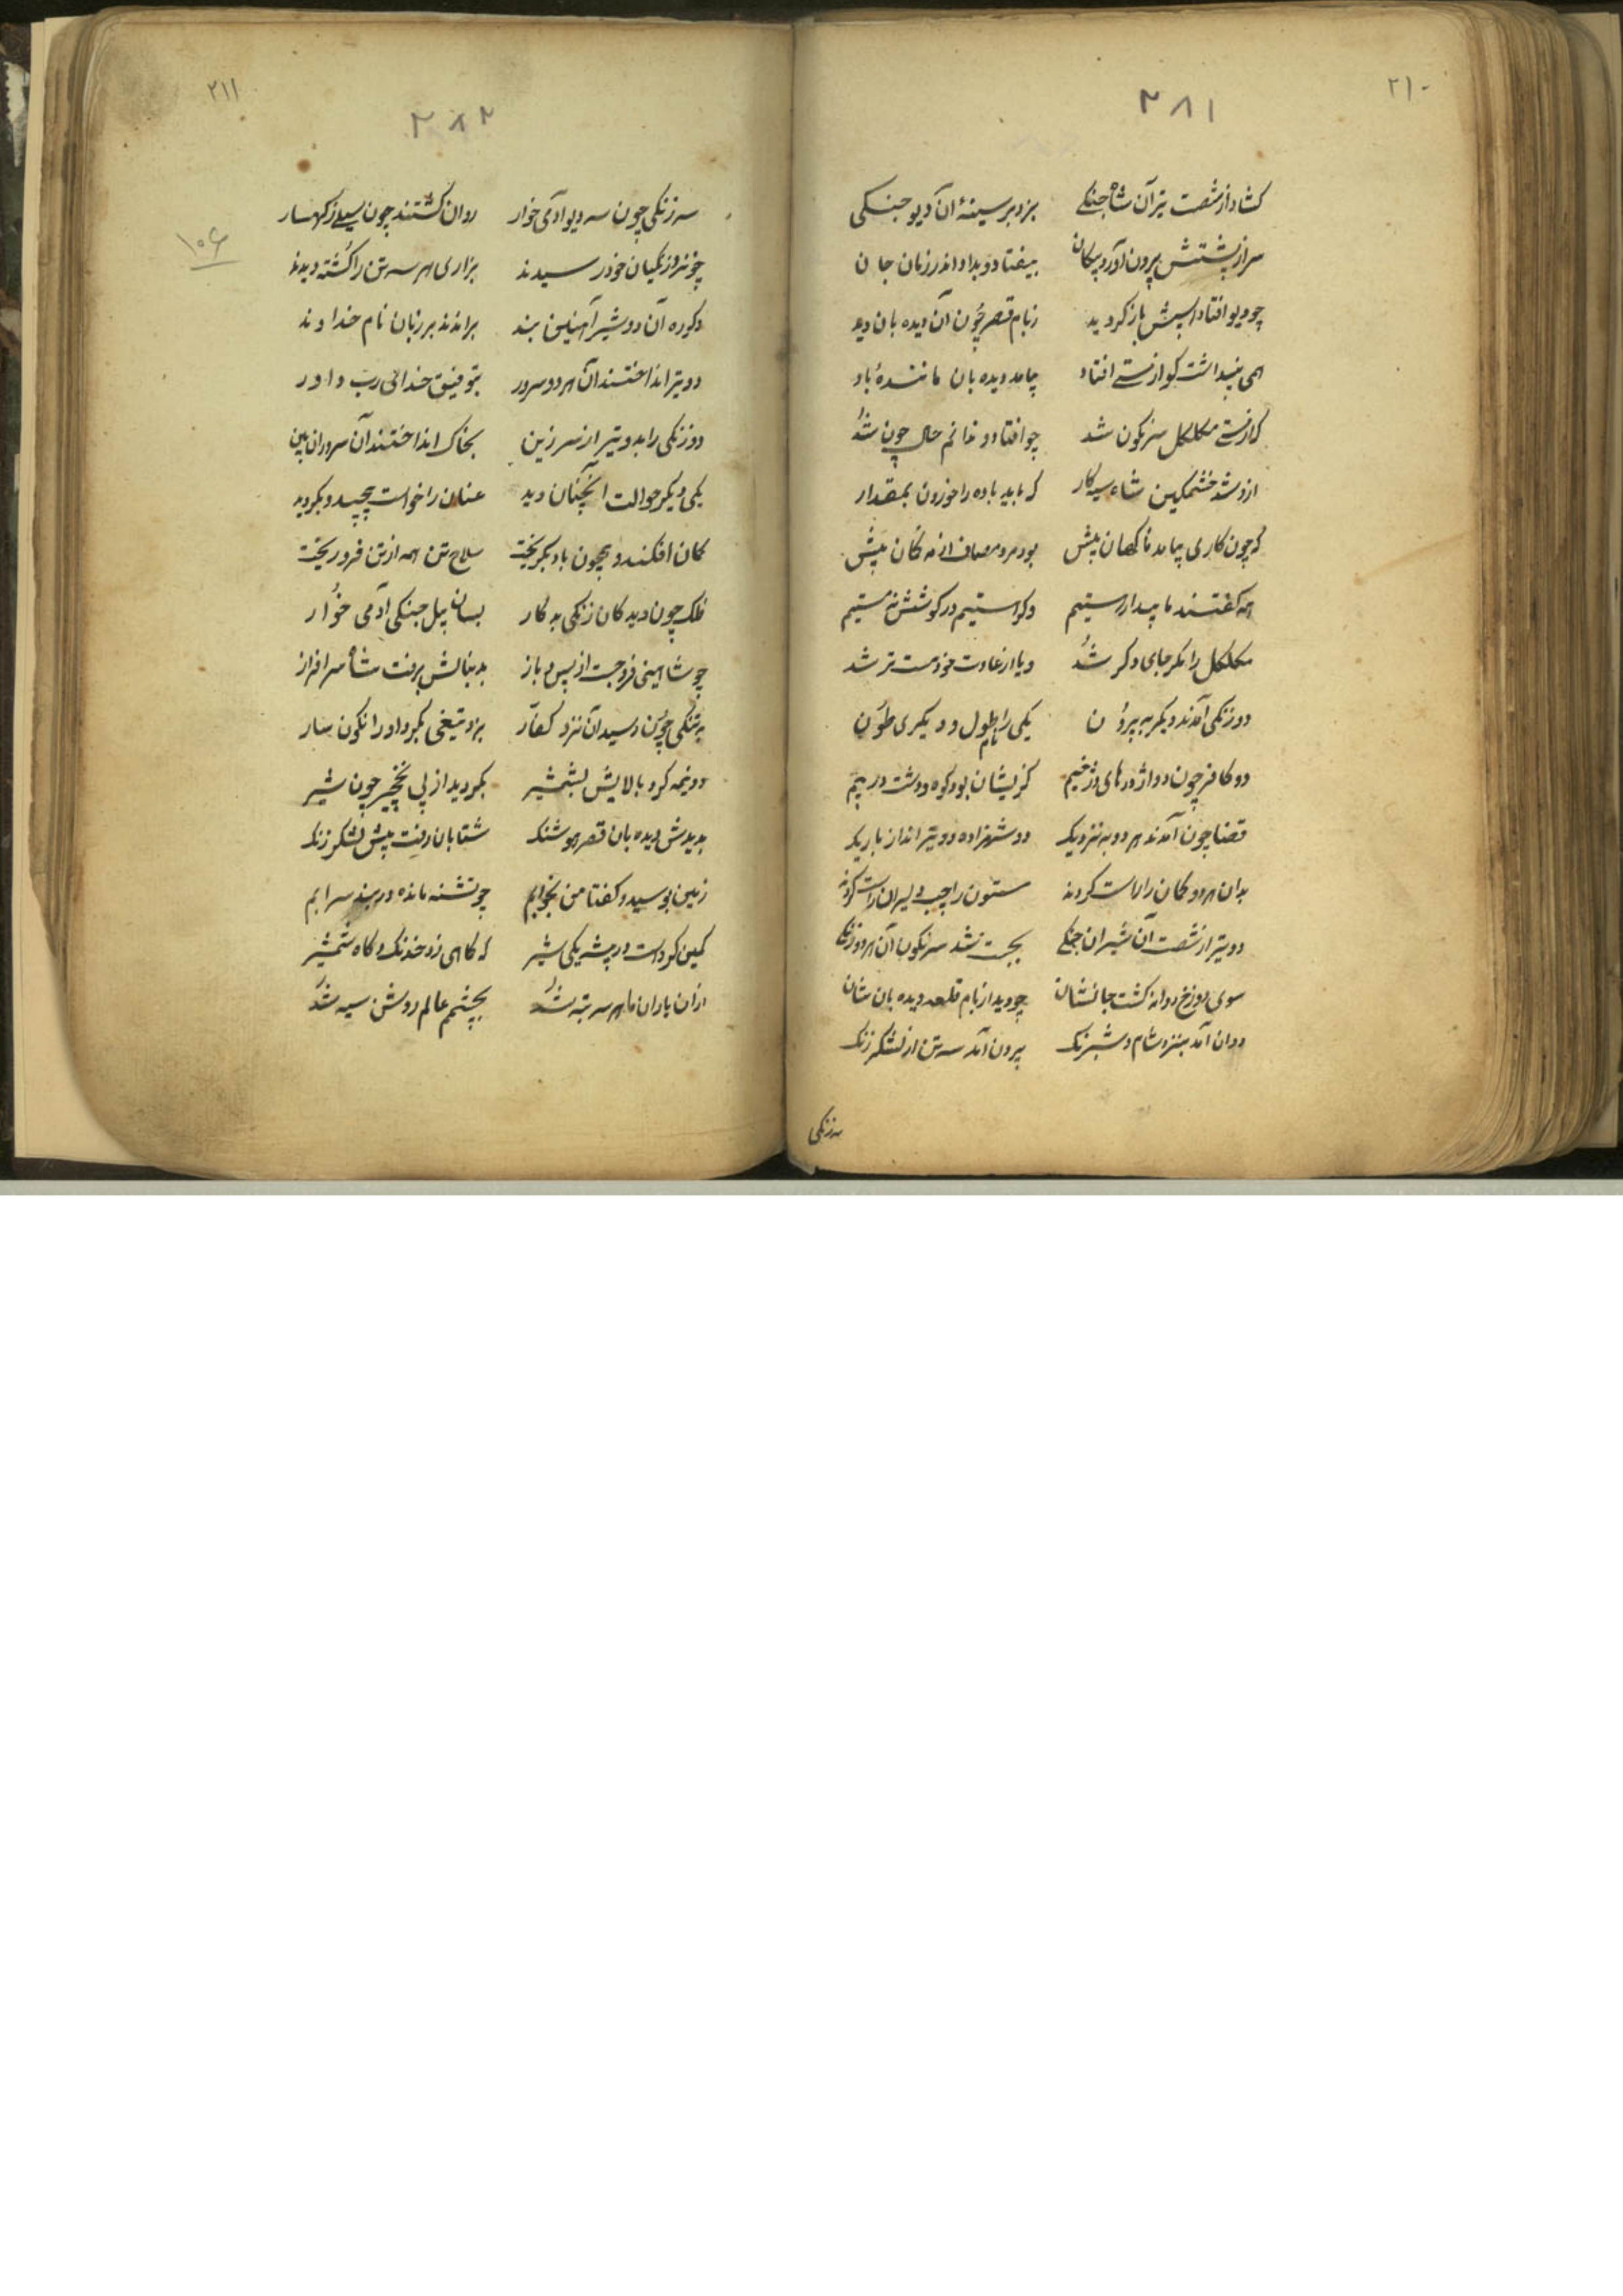 ۲۱۰
۲۸۱
کشاد از شصت تیر آن شاه جنکے بزد بر سینهٔ آن دیو جنکی
سر از پشتش برون آورد پیکان بیفتاد و بداد اندر زمان جان
چو دیو افتاد اسپش باز کردید ز بام قصر چون آن دیده بان دید
همی پنداشت کو از مستے افتاد بیامد دیده بان مانندهٔ باد
که از مستے مکلکل سرنکون شد چو افتاد و ندانم حال چون شد
ازو شد خشمکین شاه سیه کار که باید باده را خوردن بمقدار
که چون کاری بیامد ناکهان پیش بود مرد مصاف از مه کان پیش
همه کفتند ما بیدار مستیم و کر مستیم در کوشش نه مستیم
مکلکل را مکر جای دکر شد و یا از عادت خود مست تر شد
دو زنکی آمدند دیکر به بیرون یکی را نام طول و دیکری طون
دو کافر چون دو اژدرهای دژخیم کزیشان بود کوه و دشت در بیم
قضا چون آمدند هر دو به نزدیک دو شهزاده دو تیر انداز باریک
بدان هر دو کمان را راست کردند ستون را چپ دلیران راست کردند
دو تیر از شصت آن شیران جنکے بجست شد سرنکون آن هر دو زنکی
سوی دوزخ روانه کشت جانشان چو دید از بام قلعه دیده بان شان
دوان آمد بنزد شام و شبرنک برون آمد سه تن از لشکر زنک
سه زنکی
۲۱۱
۲۸۲
۱۰۶
سه زنکی چون سه دیو آدمی خوار روان کشتند چون سیلے ز کهسار
چو نزد زنکیان خود رسیدند بزاری هر سه تن را کشته دیدند
دکر ره آن دو شیر آهنین بند براندند بر زبان نام خداوند
دو تیر انداختند آن هر دو سرور بتوفیق خدائی رب داور
دو زنکی را بدو تیر از سر زین بخاک انداختند آن سروران بین
یکی دیکر حوالت آنچنان دید عنان را خواست پیچید و بکردید
کمان افکند و همچون باد بکریخت سلاح تن همه از تن فرو ریخت
فلک چون دید کان زنکی بد کار بسان پیل جنکی آدمی خوار
چو شاهینی فرو جست از پس باز بدنبالش برفت شاه سرافراز
به تنکی چون رسید آن نزد کفار بزد تیغی بکرد او را نکون سار
دو نیمه کرد بالایش بشمشیر بکردید از پی نخچیر چون شیر
بدیدش دیده بان قصر هوشنک شتابان رفت پیش لشکر زنک
زمین بوسید و کفتا من بخوابم چو تشنه مانده در بند سرابم
کمین کرد است در بیشه یکی شیر که کاهی زد خدنک و کاه شمشیر
ازان یاران ما هر سه تبه شد بچشمم عالم روشن سیه شد